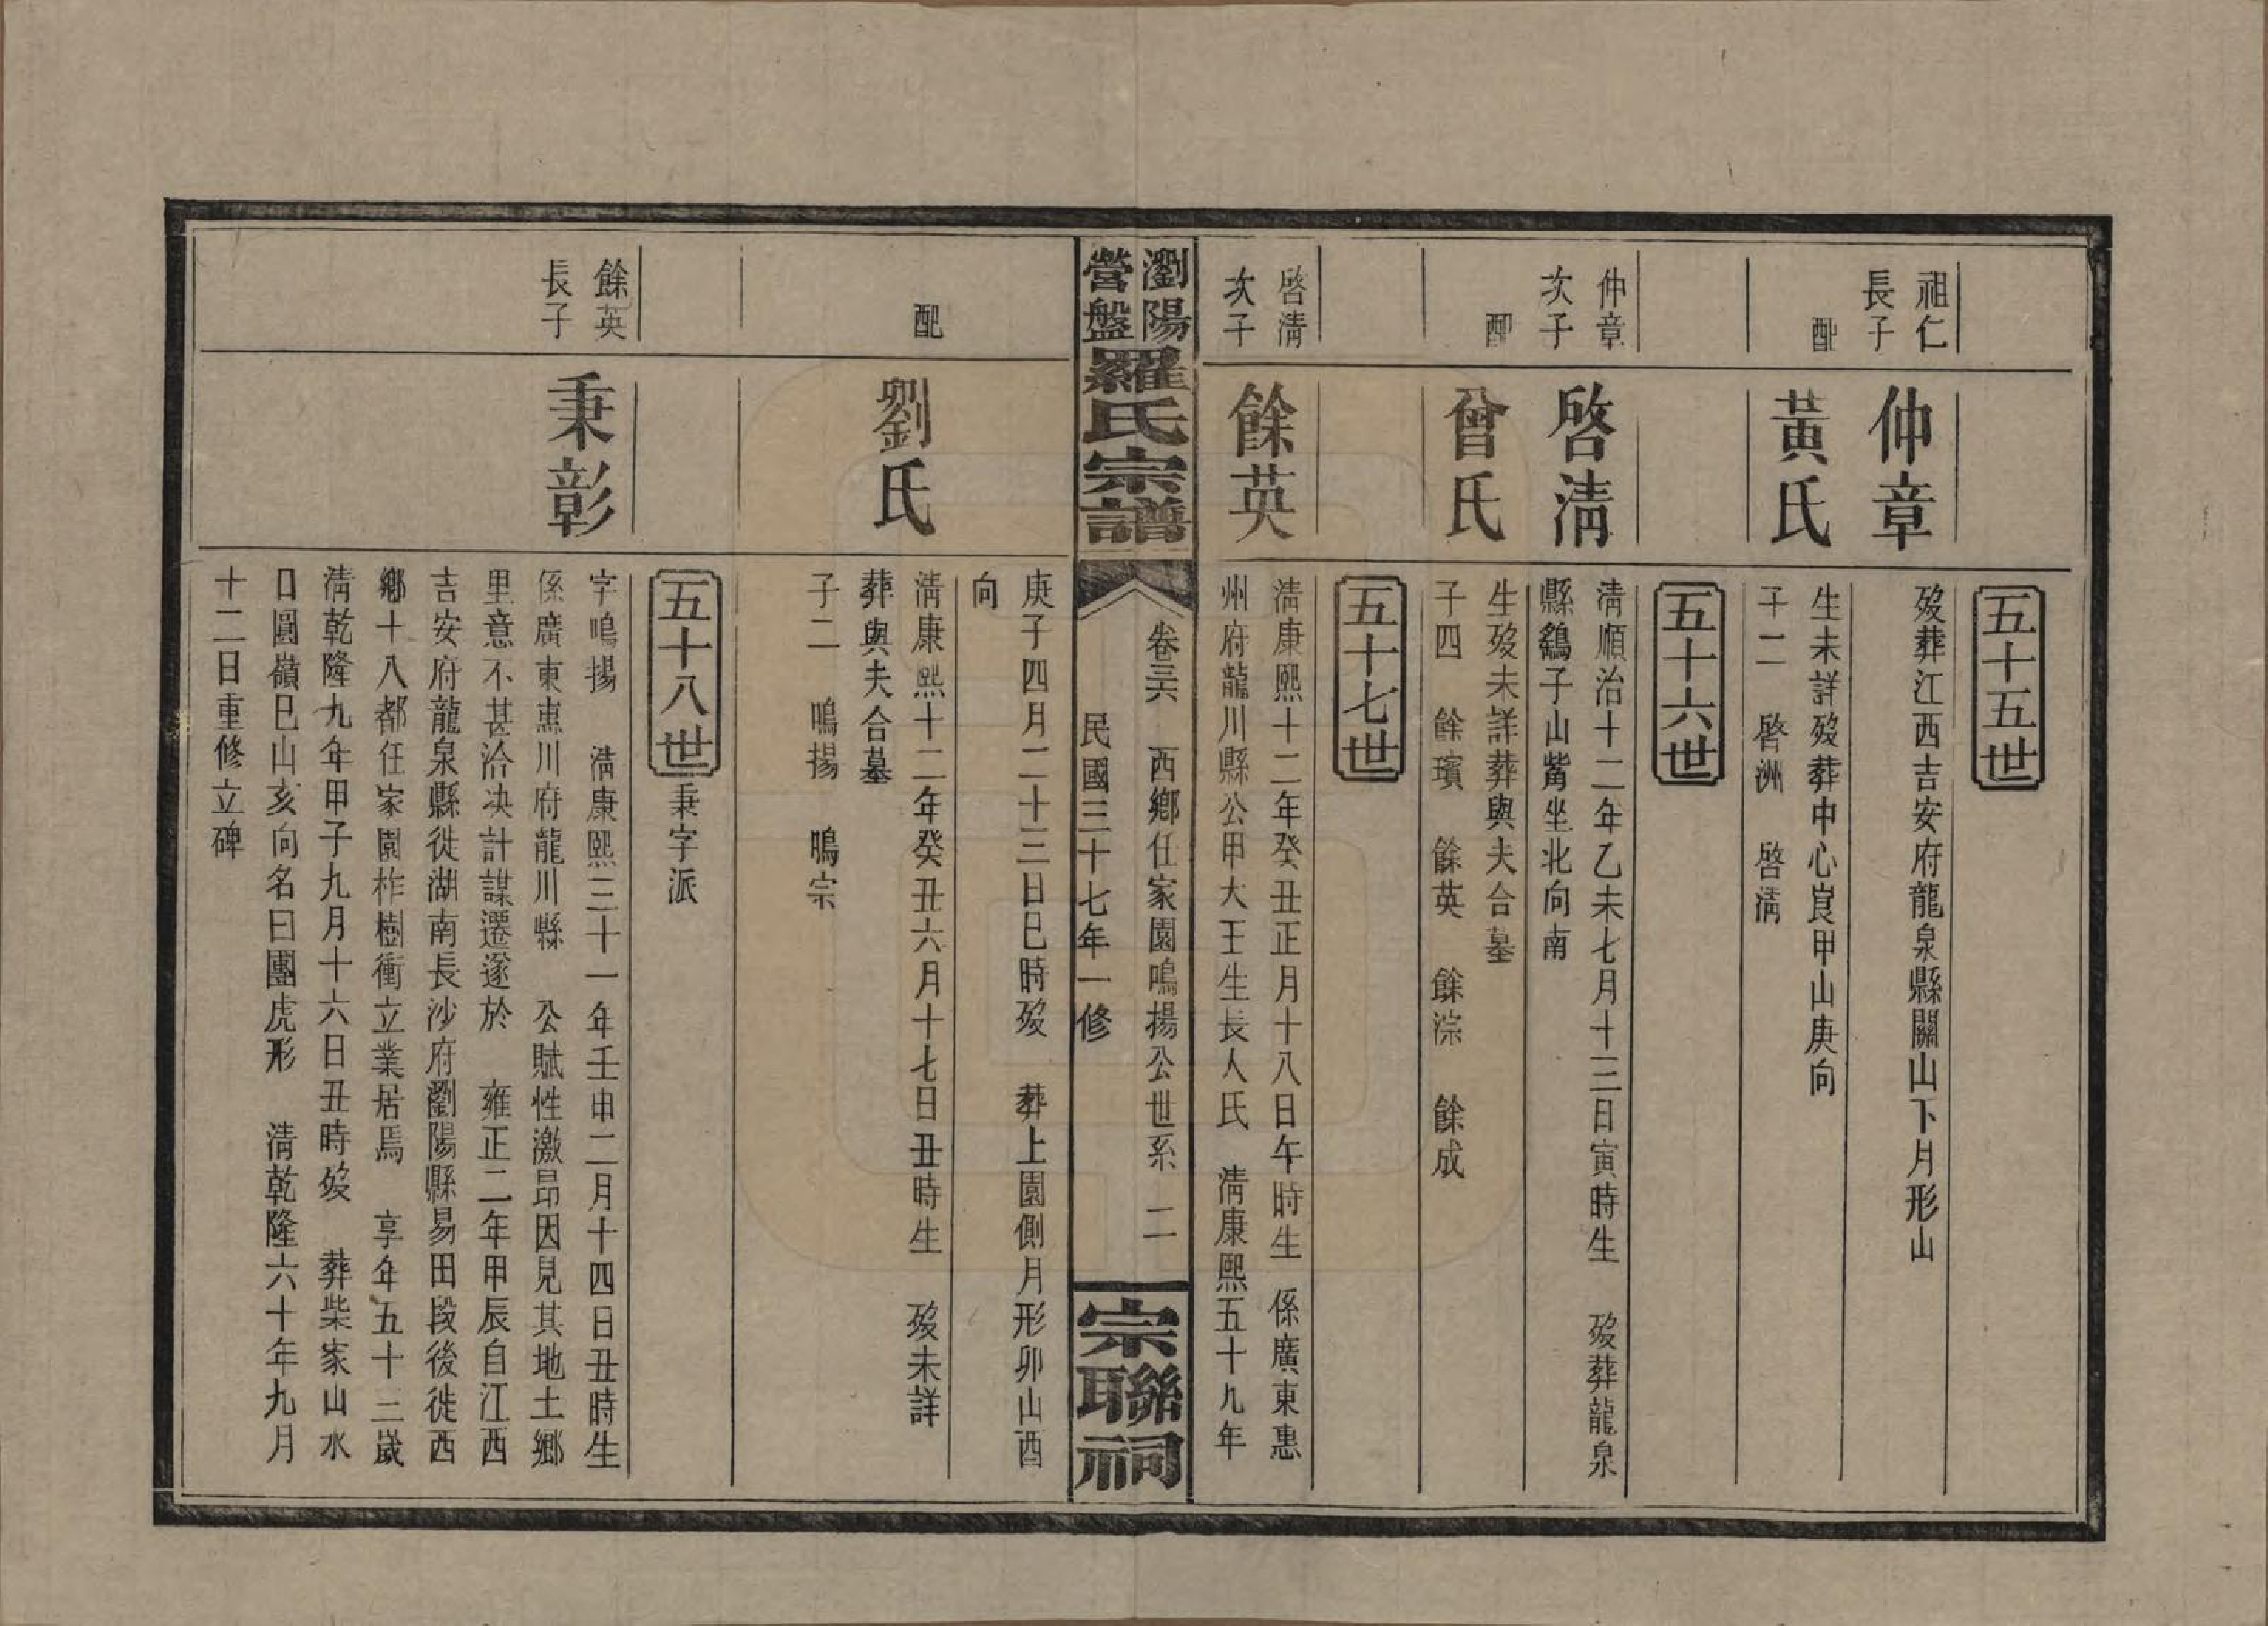 五十五世
祖仁
長子
仲章
歿葬江西吉安府龍泉縣關山下月形山
配
黃氏
生未詳歿葬中心崀甲山庚向
子二　啓洲　啓清
五十六世
仲章
次子
啓清
清順治十二年乙未七月十三日寅時生　歿葬龍泉
縣鷂子山觜坐北向南
配
曾氏
生歿未詳葬與夫合墓
子四　餘璸　餘英　餘淙　餘成
五十七世
啓清
次子
餘英
清康熙十二年癸丑正月十八日午時生　係廣東惠
州府龍川縣公甲大王生長人氏　清康熙五十九年
瀏陽
營盤
羅氏宗譜
卷三六　西鄉任家園鳴揚公世系　二
民國三十七年一修
宗聯祠
庚子四月二十三日巳時歿　葬上園側月形卯山酉
向
配
劉氏
清康熙十二年癸丑六月十七日丑時生　歿未詳
葬與夫合墓
子二　鳴揚　鳴宗
五十八世秉字派
餘英
長子
秉彰
字鳴揚　清康熙三十一年壬申二月十四日丑時生
係廣東惠川府龍川縣　公賦性激昂因見其地土鄉
里意不甚洽决計謀遷遂於　雍正二年甲辰自江西
吉安府龍泉縣徙湖南長沙府瀏陽縣易田段後徙西
鄉十八都任家園柞樹衝立業居焉　享年五十三歲
清乾隆九年甲子九月十六日丑時歿　葬柴家山水
口圓嶺巳山亥向名曰團虎形　清乾隆六十年九月
十二日重修立碑